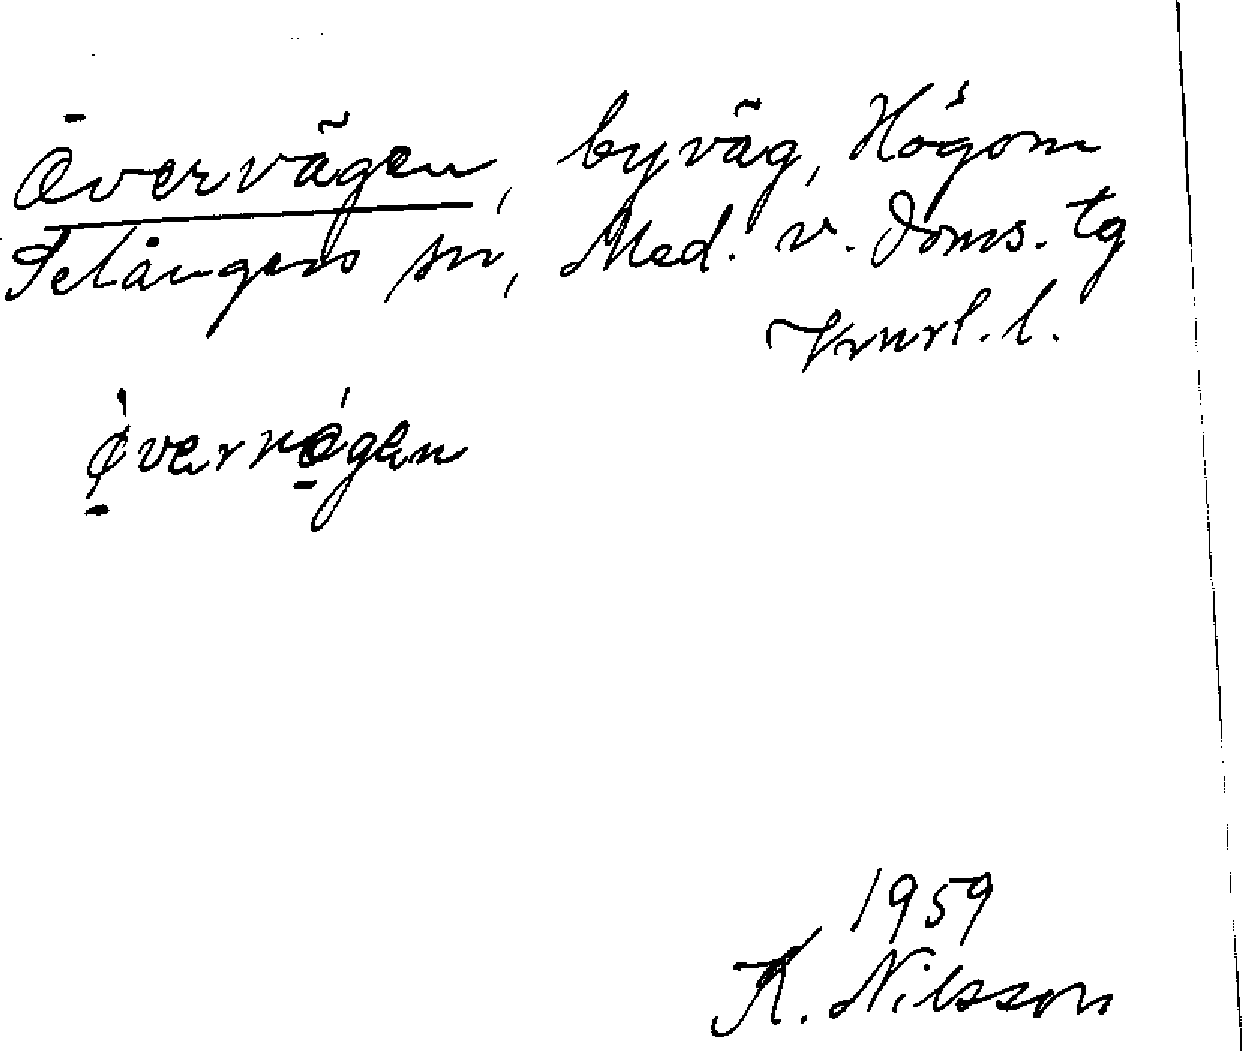 Övervägen, byväg, Högom
Selångers sn, Med. v. doms. tg
Kvarl. l.
øvervǿgen
1959
K. Nilsson